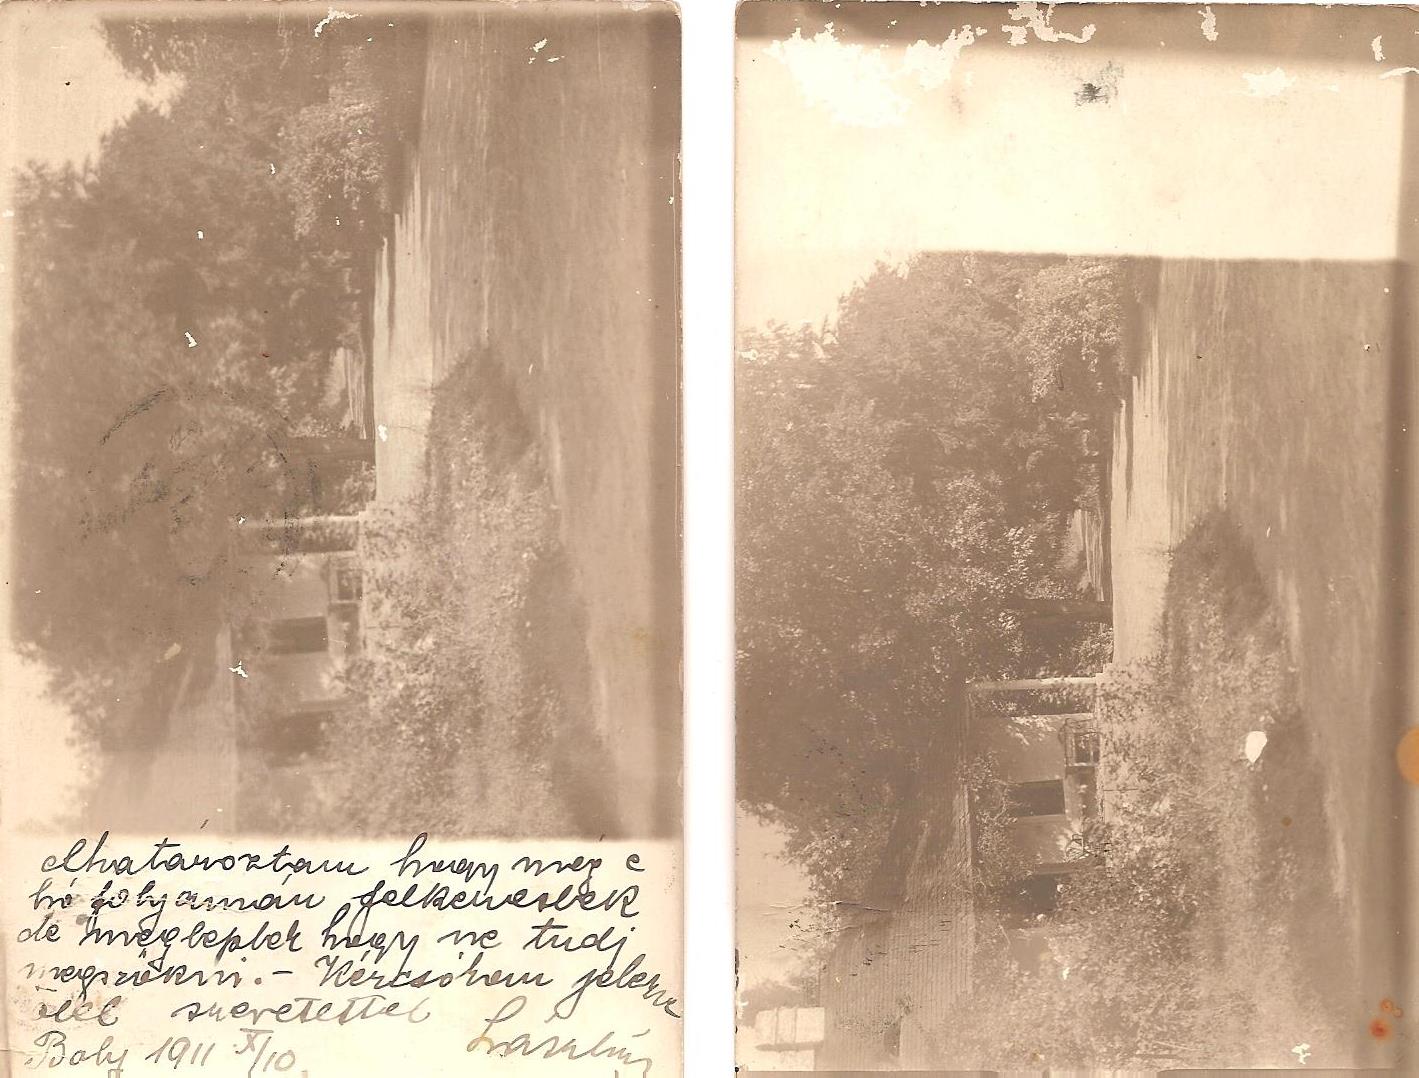 Elhatároztam hogy még e
hó folyamán felkereslek
de megleplek hogy ne tudj
megszökni. - Kézcsókom jelezve
ölel szeretettel
Boly 1911 X/10. László